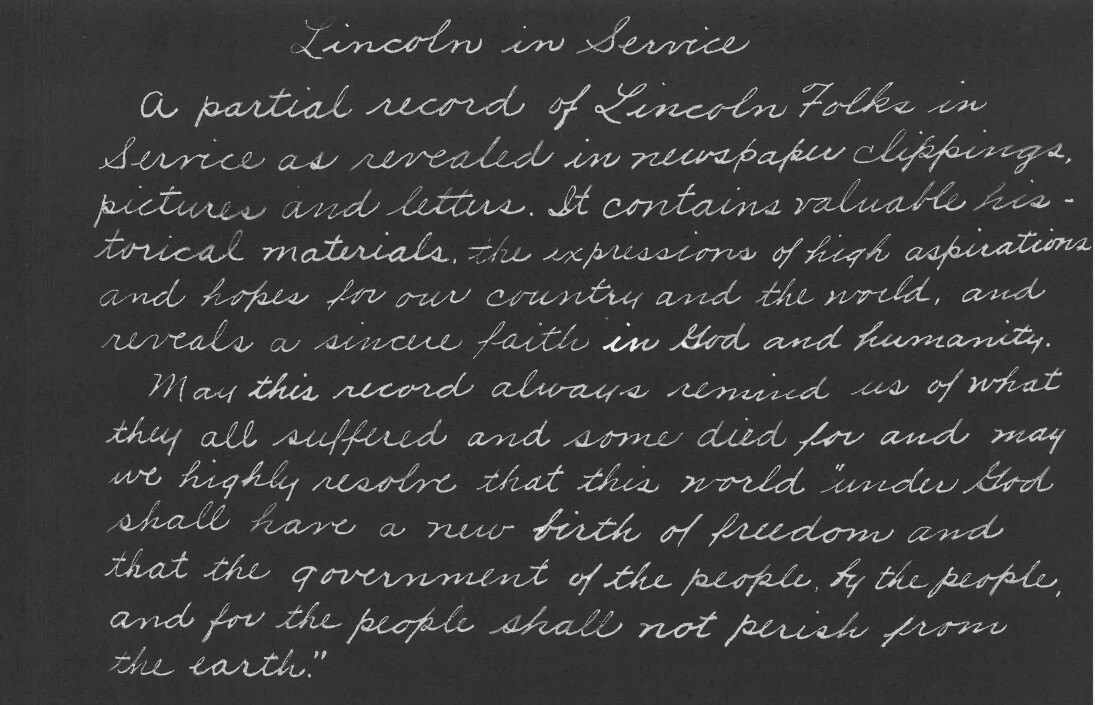 Lincoln in Service
A partial record of Lincoln Folks in
Service as revealed in newspaper clippings,
pictures and letters. It contains valuable his-
torical materials, the expressions of high aspirations
and hopes for our country and the world, and
reveals a sincere faith in God and humanity.
May this record always remind us of what
they all suffered and some died for and may
we highly resolve that this world "under God
shall have a new birth of freedom and
that the government of the people, by the people,
and for the people shall not perish from
the earth."